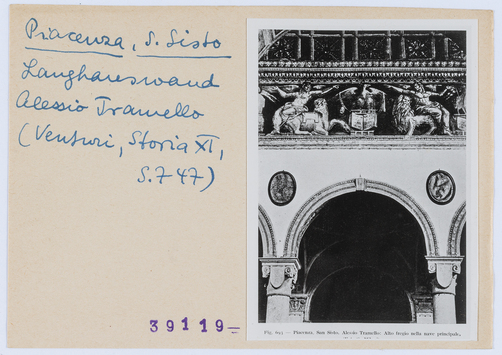 Piacenza, S. Sisto
Langhauswand
Alessio Tramello
(Venturi, Storia XI,
S. 747)
39119-
Fig. 693 — Piacenza, San Sisto. Alessio Tramello: Alto fregio nella nave principale.